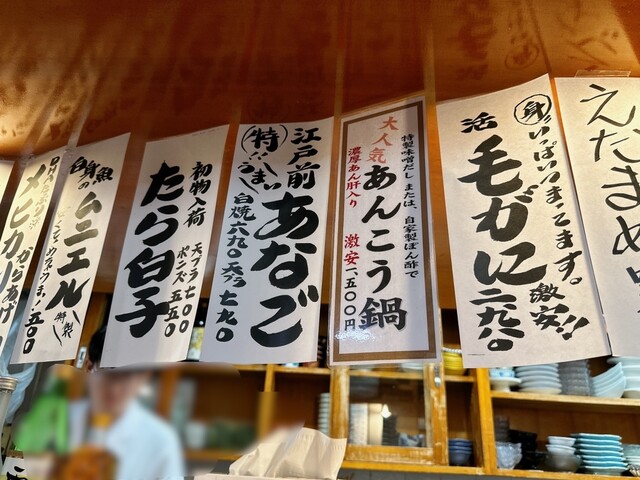 えだまめ
活
身いっぱいいまってます。
毛がに
激安!!
二九八〇
大人気
特製味噌だしまたは、自家製ぽん酢で
濃厚あん肝入り
あんこう鍋
激安一、五〇〇円
江戸前
あなご
特
うまい
白焼六九〇天プラ七九〇
初物入荷
たら白子
天プラ七〇〇
ポン酢五五〇
白身魚の
ムニエル
特製
メヒカリ
からあげ
五〇〇